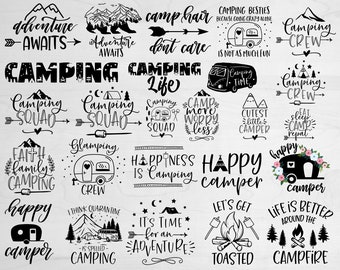 adventure
AWAITS
Adventure
AWAITS
camp hair
don't care
CAMPING BESTIES
BECAUSE GOING CRAZY ALONE
IS NOT AS MUCH FUN
CAMPING
CREW
CAMPING
CAMPING
Life
Camping
TIME
Camping
CREW
Camping
SQUAD
Camping
SQUAD
Camping
SQUAD
CAMP
MORE
WORRY
LESS
CUTEST
little
CAMPER
eat
sleep
camp
repeat
family
CAMPING
Glamping
CREW
HAPPINESS
is Camping
HAPPY
camper
happy
camper
happy
camper
I THINK QUARANTINE
IS SPELLED
CAMPING
IT'S TIME
for an
ADVENTURE
LET'S GET
TOASTED
LIFE IS BETTER
AROUND THE
CAMPFIRE